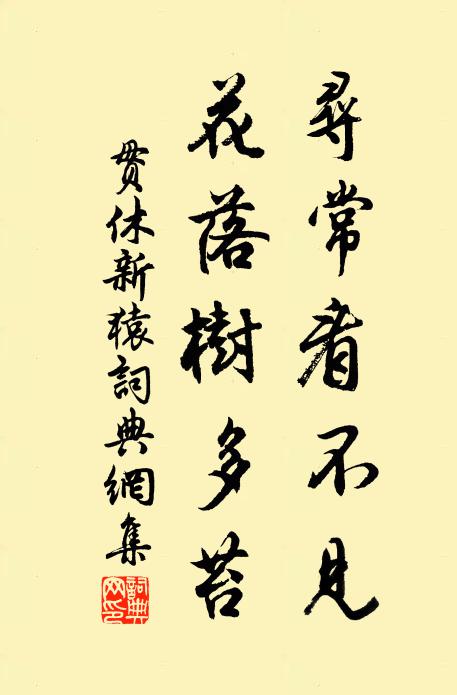 尋常看不見
花落樹多苔
貫休新猿詞典網集
詞典网印